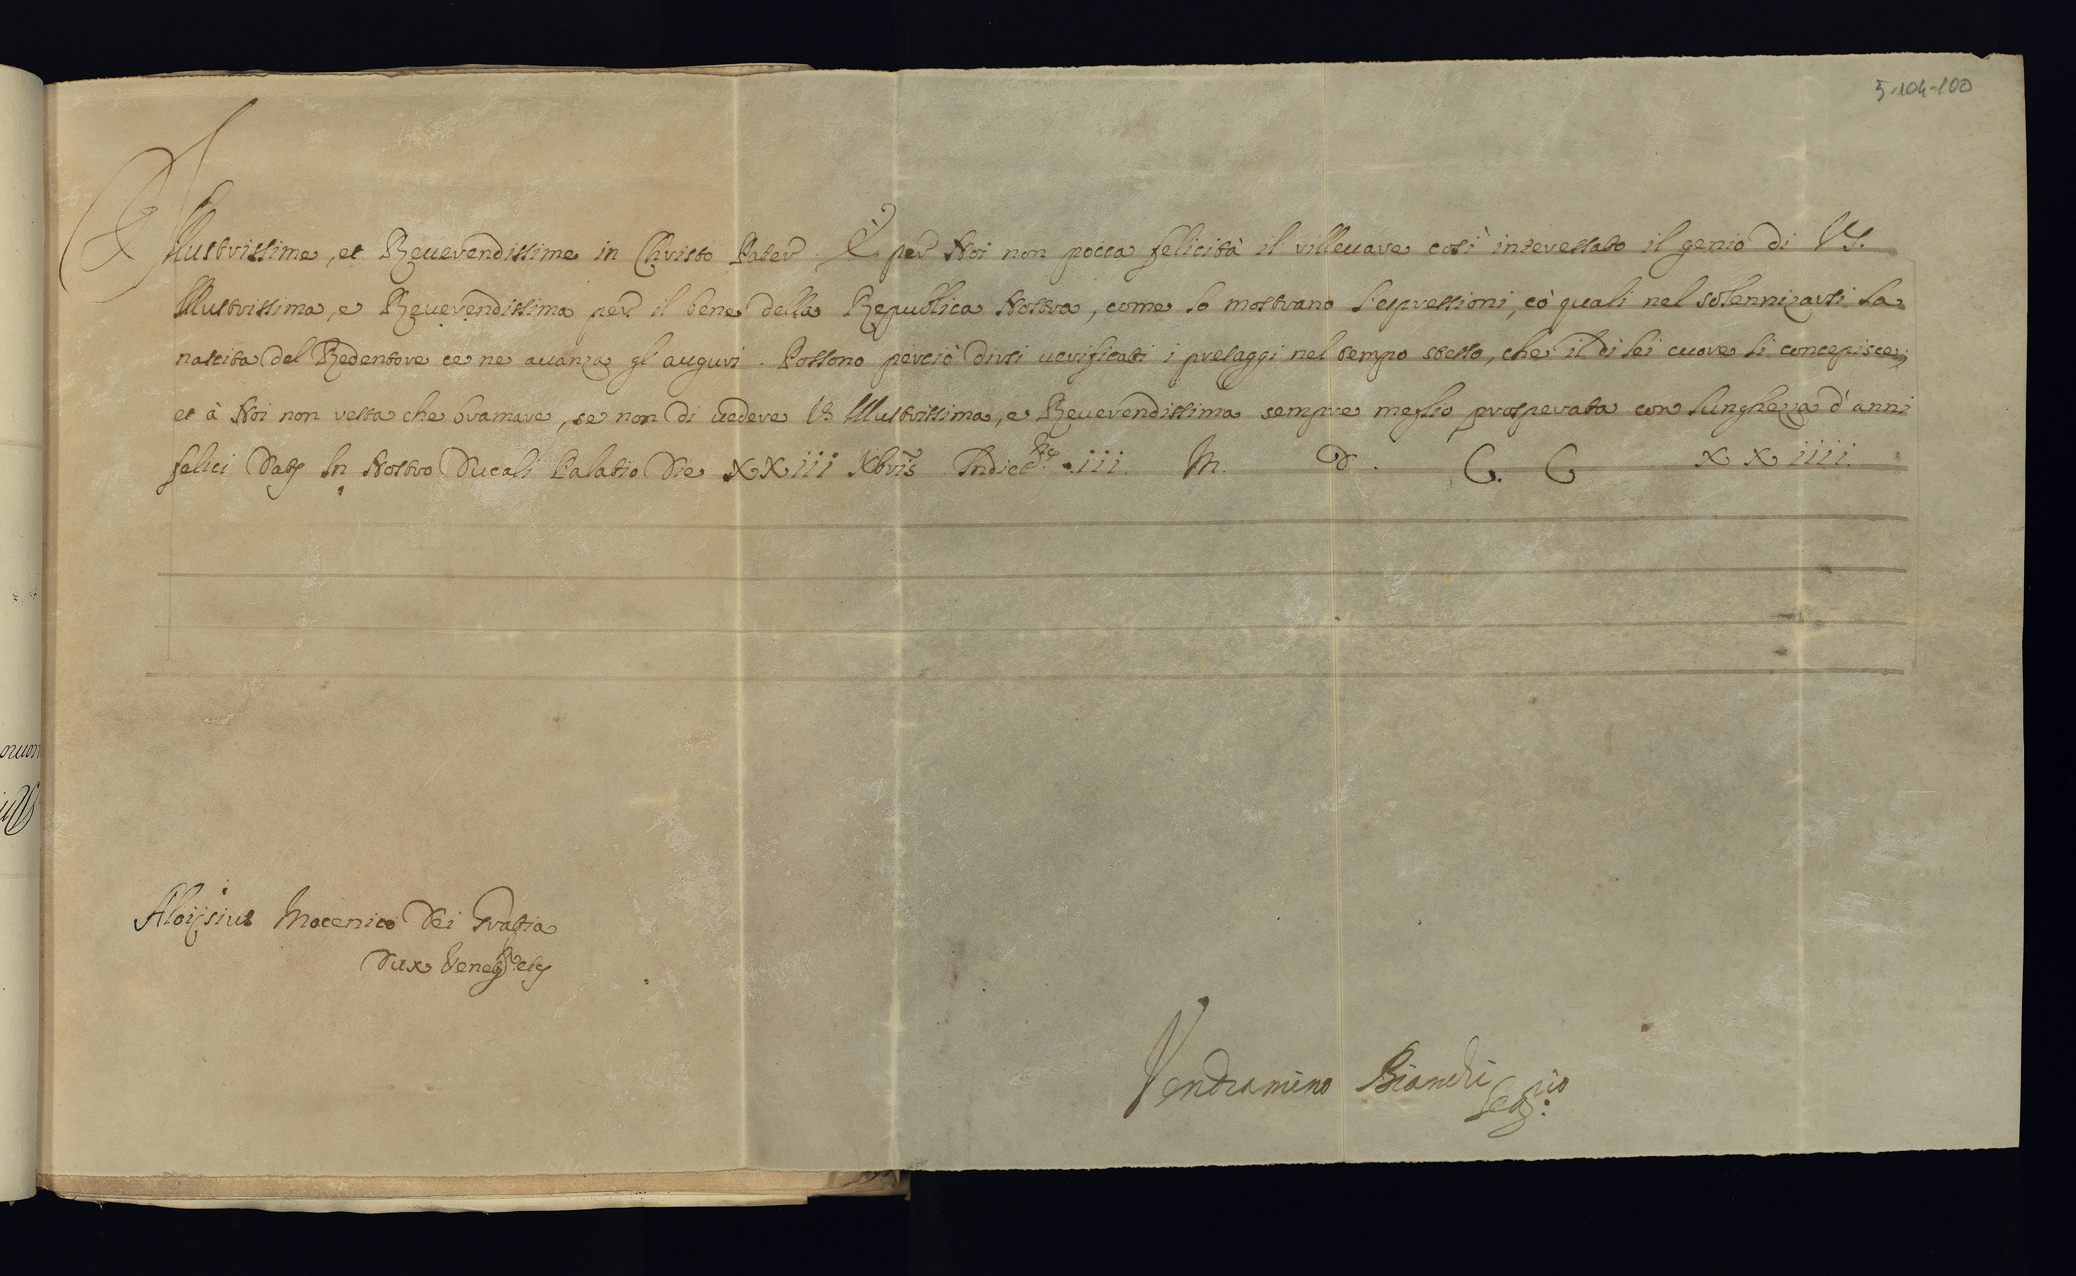 5-104-100
Illustrissime, et Reuerendissime in Christo Pater. È per Noi non pocca felicità il rilleuare così interessato il genio di VS.
Illustrissima, e Reuerendissima per il bene della Republica Nostra, come lo mostrano l'espressioni, cò quali nel solennizarsi la
nascita del Redentore ce ne auanza gl'auguri. Possono perciò dirsi uerificatti i presaggi nel tempo stesso, che il di lei cuore li concepisce;
et à Noi non resta che bramare, se non di uedere VS Illustrissima, e Reuerendissima sempre meglio prosperata con lunghezza d'anni
felici Dat. In Nostro Ducali Palatio Die XXIII Xbris Indict.ne III. M. D. C. C XXIIII.
Aloijsius Mocenico Dei Gratia
Dux Venet.r etc
Vendramino Bianchi
Seg.rio